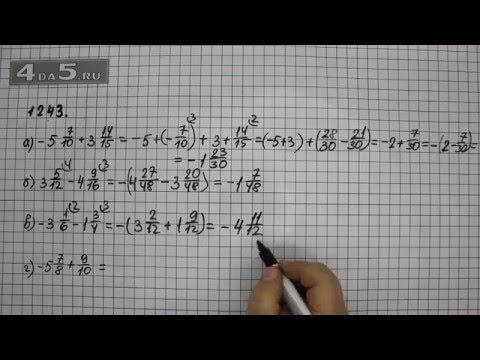 4DA5.RU
1243.
а) -5 7/10 + 3 14/15 = -5 + (-7/10)³ + 3 + 14/15² = (-5+3) + (28/30 - 21/30) = -2 + 7/30 = -(2 - 7/30) =
= -1 23/30
б) 3 5/12⁴ - 4 9/16³ = -(4 27/48 - 3 20/48) = -1 7/48
в) -3 1/6² - 1 3/4³ = -(3 2/12 + 1 9/12) = -4 11/12
г) -5 7/8 + 9/10 =